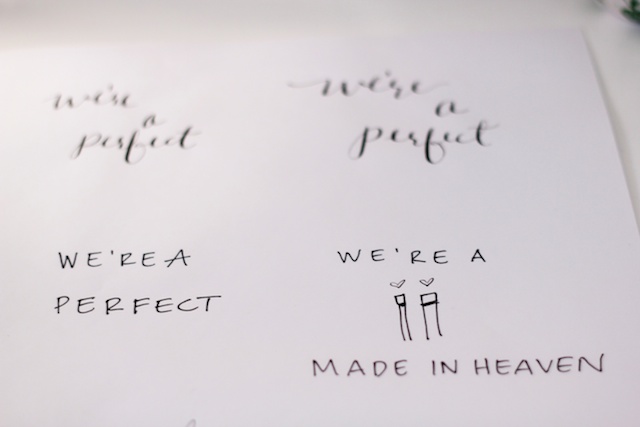 we're
a
perfect
we're
a
perfect
WE'RE A
PERFECT
WE'RE A
MADE IN HEAVEN